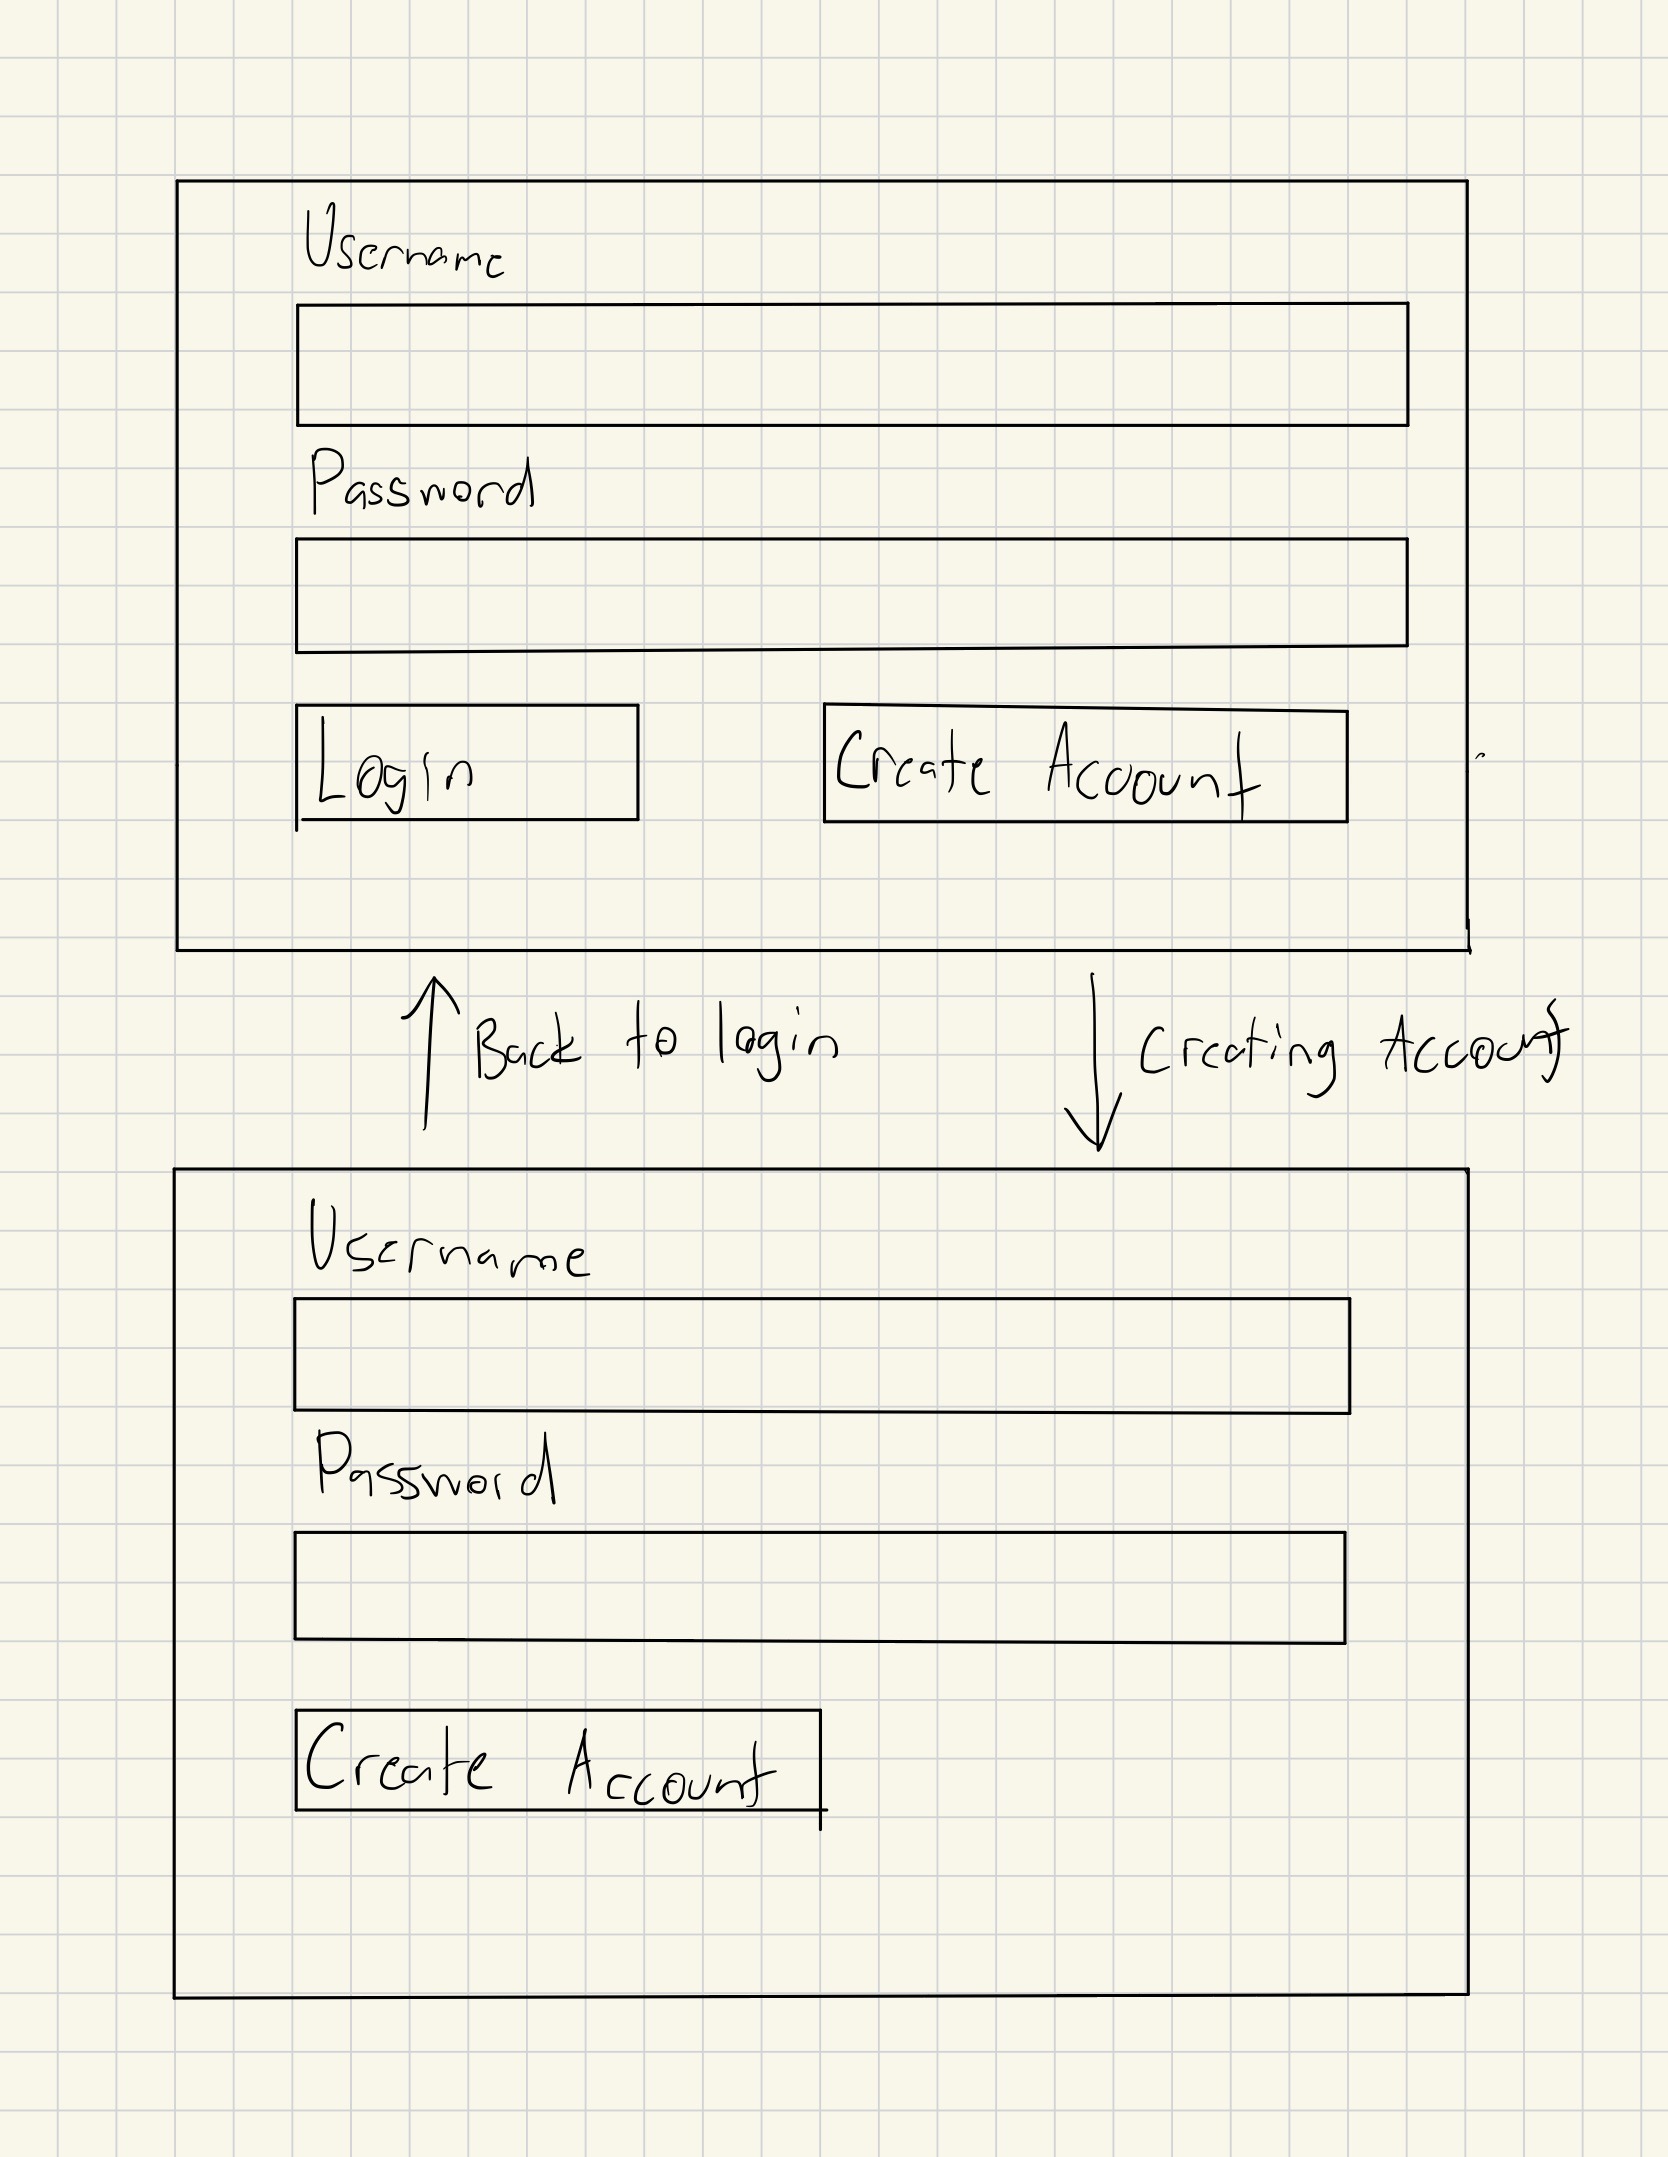 Username
Password
Login
Create Account
Back to login
Creating Account
Username
Password
Create Account